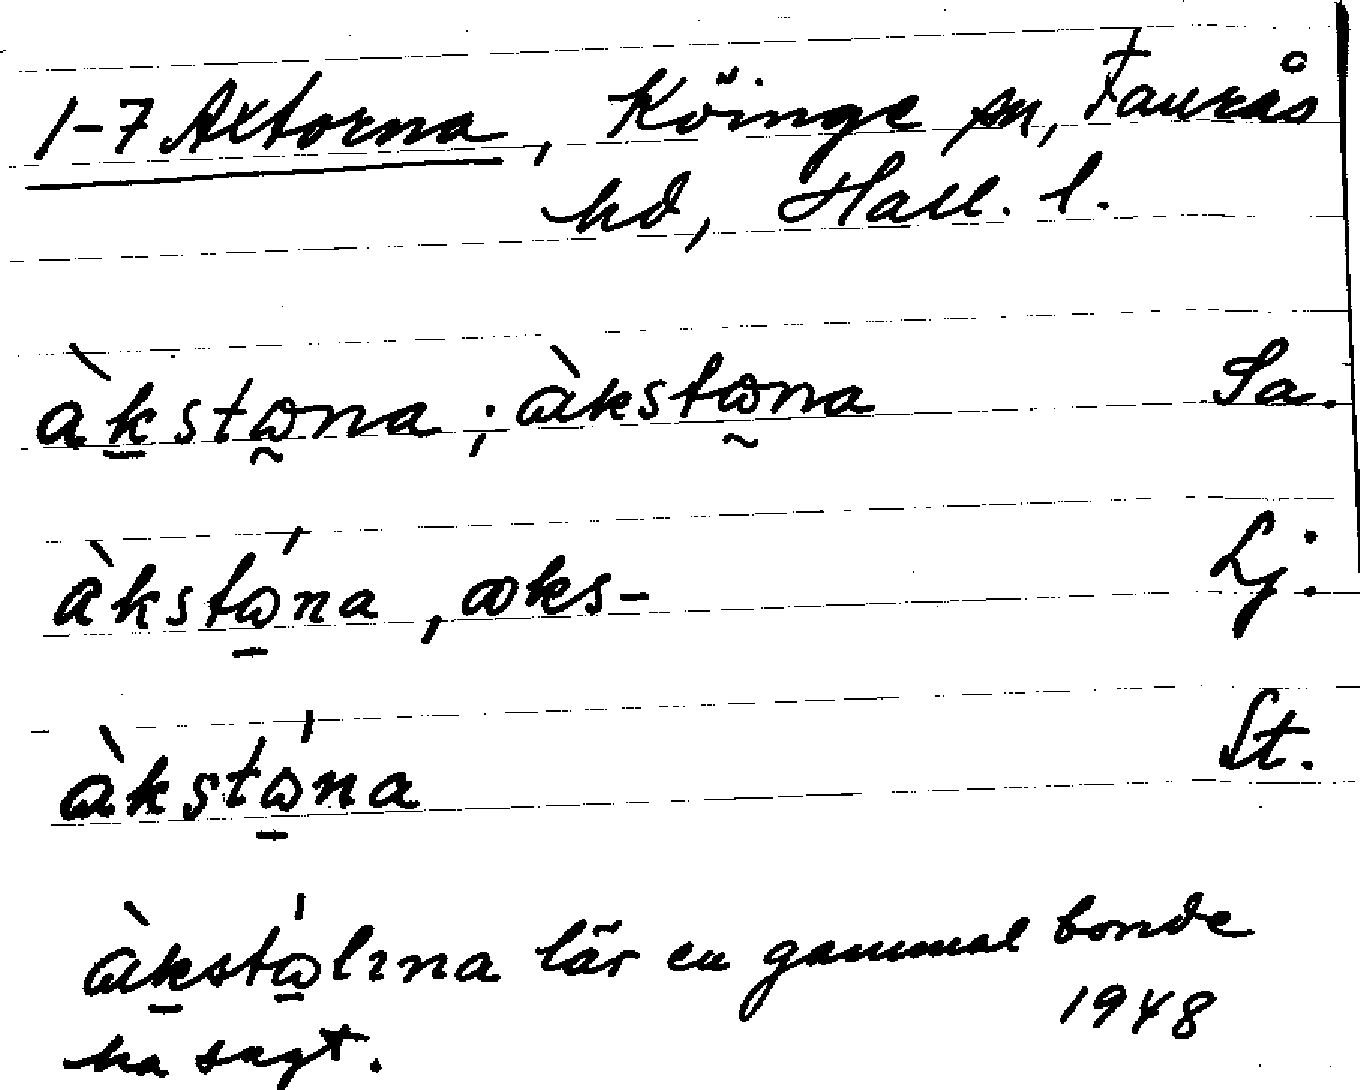 1-7 Axtorna, Köinge sn, Faurås
hd, Hall. l.
àks̠tɷ̰na; àkstɷ̰na Sa.
àkstɷ̠́na, æks- Lj.
àkstɷ̠́na St.
àḵstɷ̠́lɩna lär en gammal bonde
1948
ha sagt.